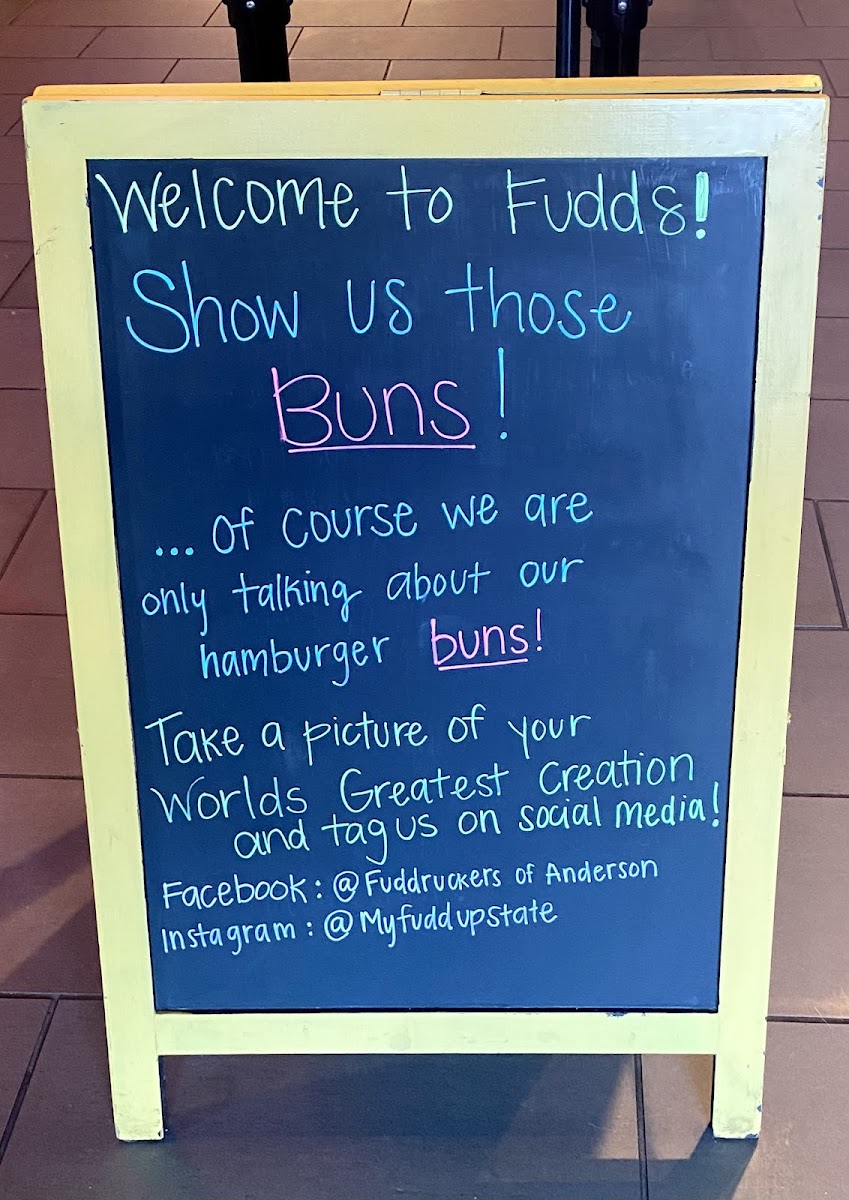 Welcome to Fudds!
Show us those
Buns!
... of course we are
only talking about our
hamburger buns!
Take a picture of your
Worlds Greatest Creation
and tag us on social media!
Facebook: @Fuddruckers of Anderson
Instagram: @Myfuddupstate